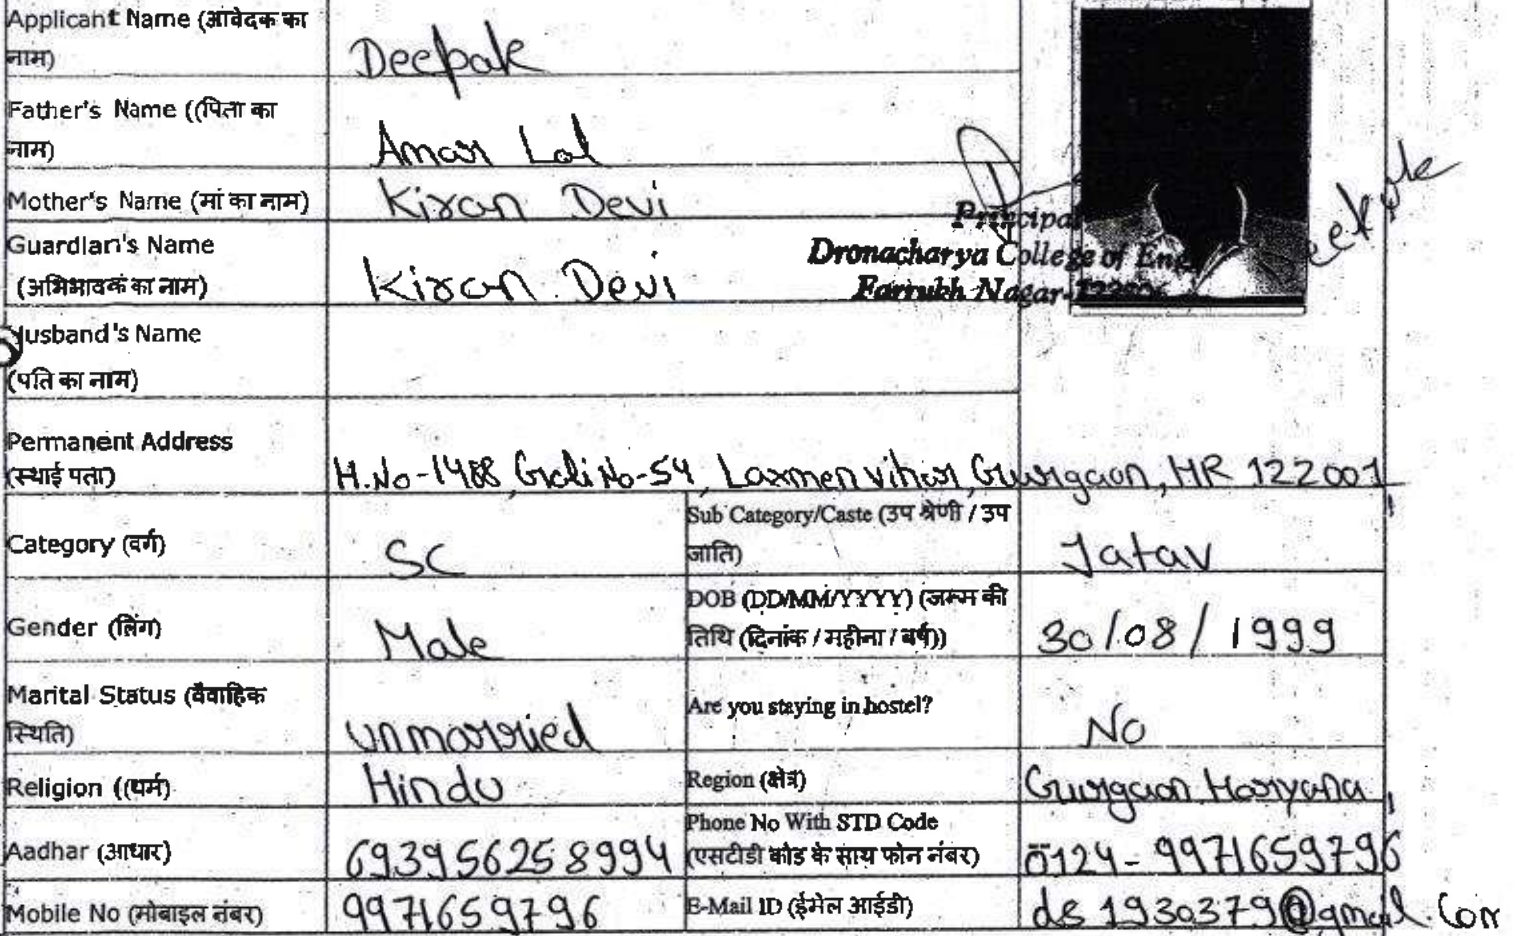 Applicant Name (आवेदक का
नाम)
Deepak
Father's Name ((पिता का
नाम)
Amar Lal
Mother's Name (मां का नाम)
Kiran Devi
Guardian's Name
(अभिभावक का नाम)
Kiran Devi
Principal
Dronacharya College of Eng
Farrukh Nagar-
Deepak
Husband's Name
(पति का नाम)
Permanent Address
(स्थाई पता)
H.No-1488, Gali No-54, Laxmen vihar, Gurgaon, HR 122001
Category (वर्ग)
SC
Sub Category/Caste (उप श्रेणी / उप
जाति)
Jatav
Gender (लिंग)
Male
DOB (DD/MM/YYYY) (जन्म की
तिथि (दिनांक / महीना / वर्ष))
30/08/1999
Marital Status (वैवाहिक
स्थिति)
unmarried
Are you staying in hostel?
No
Religion ((धर्म)
Hindu
Region (क्षेत्र)
Gurgaon Haryana
Aadhar (आधार)
693956258994
Phone No With STD Code
(एसटीडी कोड के साथ फोन नंबर)
0124-9971659796
Mobile No (मोबाइल नंबर)
9971659796
E-Mail ID (ईमेल आईडी)
ds1930379@gmail.com